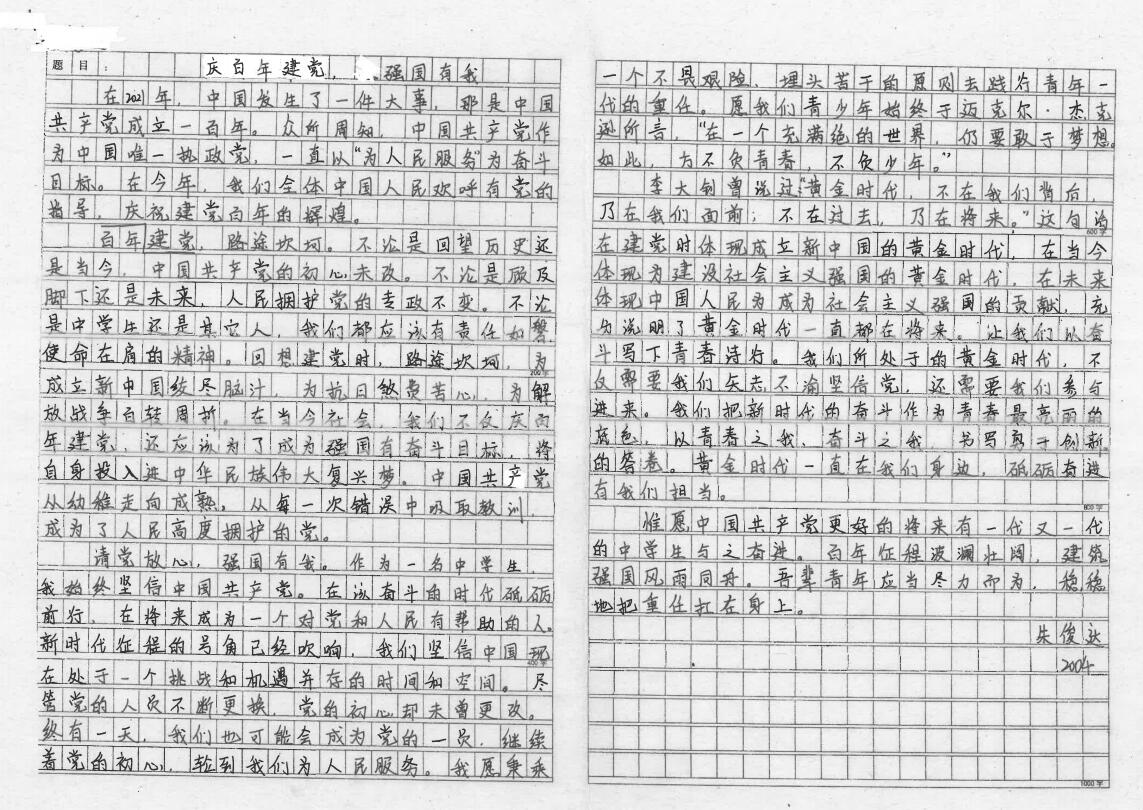 题目：
庆百年建党，强国有我
在2021年，中国发生了一件大事，那是中国
共产党成立一百年。众所周知，中国共产党作
为中国唯一执政党，一直以“为人民服务”为奋斗
目标。在今年，我们全体中国人民欢呼有党的
指导，庆祝建党百年的辉煌。
百年建党，路途坎坷。不论是回望历史还
是当今，中国共产党的初心未改。不论是顾及
脚下还是未来，人民拥护党的专政不变。不论
是中学生还是其它人，我们都应该有责任如磐
使命在肩的精神。回想建党时，路途坎坷，为
200字
成立新中国绞尽脑汁，为抗日煞费苦心，为解
放战争百转周折。在当今社会，我们不仅庆百
年建党，还应该为了成为强国有奋斗目标，将
自身投入进中华民族伟大复兴梦。中国共产党
从幼稚走向成熟，从每一次错误中吸取教训，
成为了人民高度拥护的党。
请党放心，强国有我。作为一名中学生，
我始终坚信中国共产党。在该奋斗的时代砥砺
前行，在将来成为一个对党和人民有帮助的人。
新时代征程的号角已经吹响，我们坚信中国现
400字
在处于一个挑战和机遇并存的时间和空间。尽
管党的人员不断更换，党的初心却未曾更改。
终有一天，我们也可能会成为党的一员，继续
着党的初心，轮到我们为人民服务。我愿秉乘
一个不畏艰险、埋头苦干的原则去践行青年一
代的重任。愿我们青少年始终于迈克尔·杰克
逊所言，“在一个充满绝的世界，仍要敢于梦想。
如此，方不负青春，不负少年。”
李大钊曾说过“黄金时代，不在我们背后，
乃在我们面前；不在过去，乃在将来。”这句话
600字
在建党时体现成立新中国的黄金时代，在当今
体现为建设社会主义强国的黄金时代，在未来
体现中国人民为成为社会主义强国的贡献，充
分说明了黄金时代一直都在将来。让我们以奋
斗写下青春诗行。我们所处于的黄金时代，不
仅需要我们矢志不渝坚信党，还需要我们参与
进来。我们把新时代的奋斗作为青春最亮丽的
底色，以青春之我、奋斗之我，书写勇于创新
的答卷。黄金时代一直在我们身边，砥砺奋进
有我们担当。
800字
惟愿中国共产党更好的将来有一代又一代
的中学生与之奋进。百年征程波澜壮阔，建筑
强国风雨同舟。吾辈青年应当尽力而为，稳稳
地把重任扛在身上。
朱俊达
2004
1000字